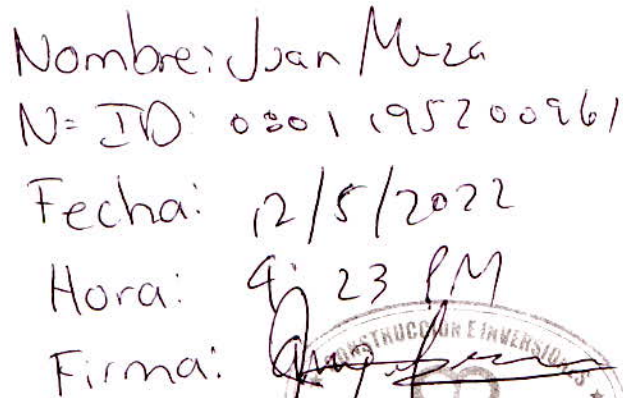 Nombre: Juan Meza
N= ID: 0801 195200961
Fecha: 12/5/2022
Hora: 4:23 PM
Firma:
CONSTRUCCION E INVERSIONES